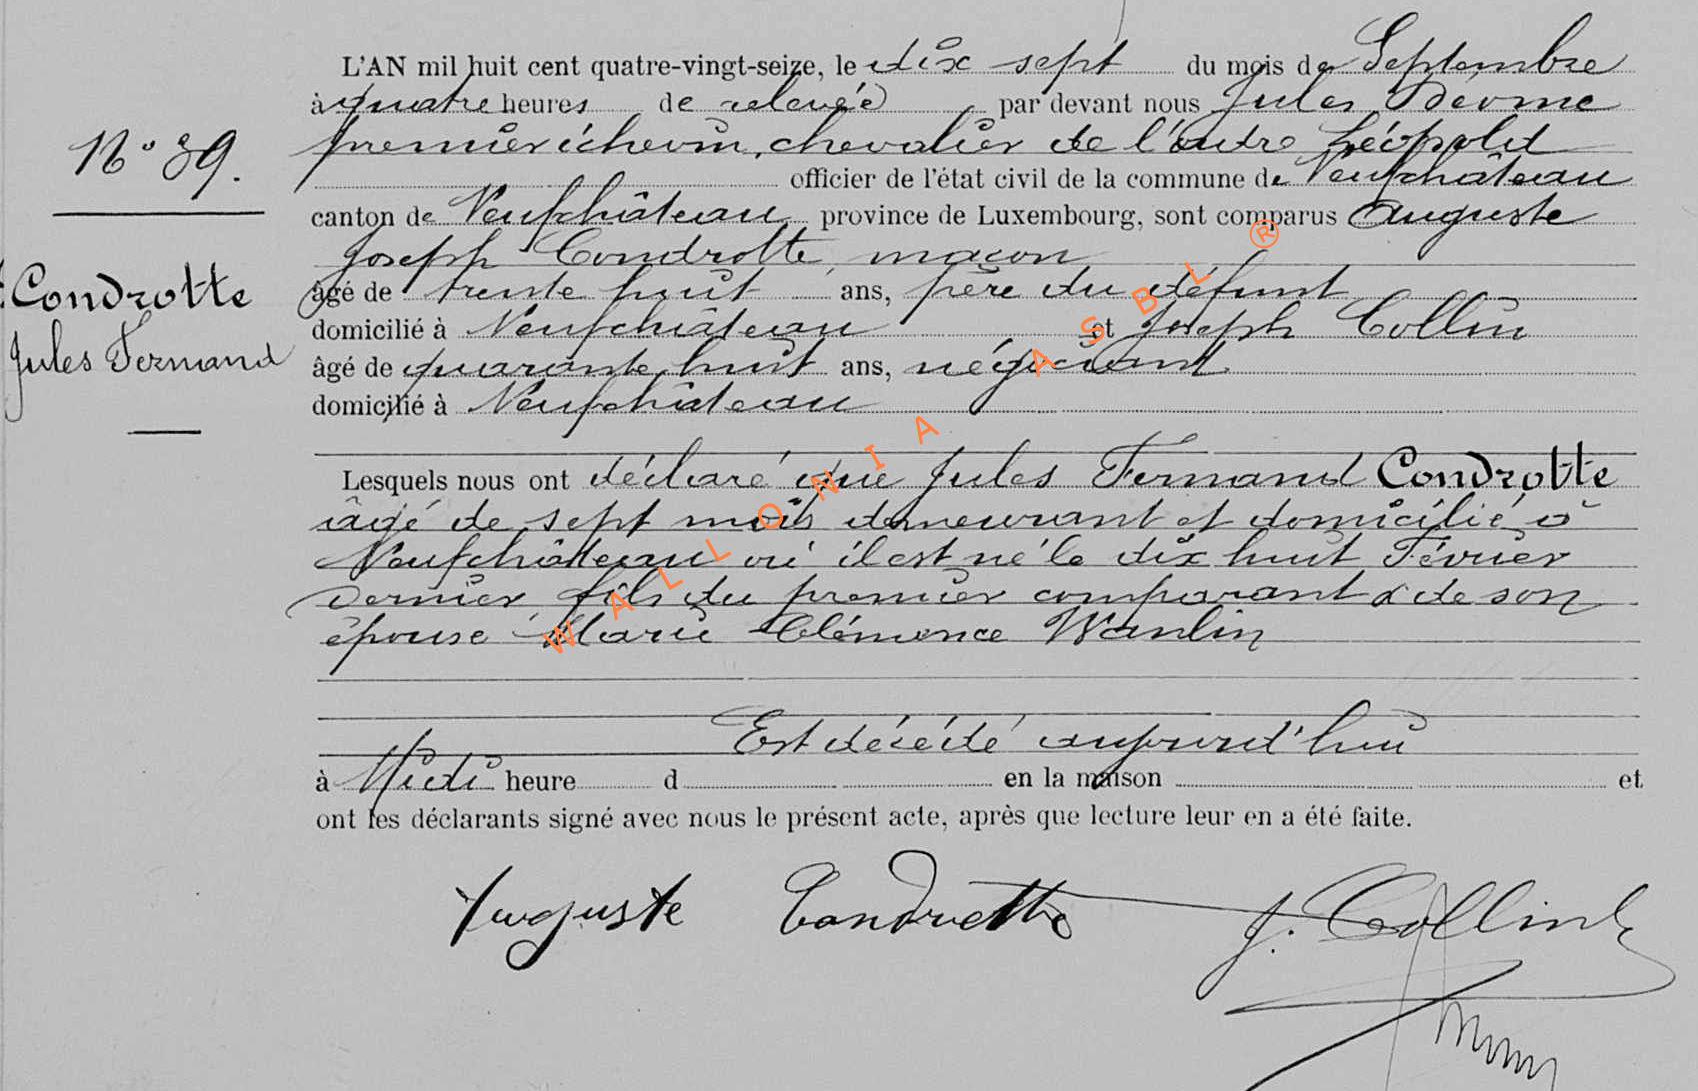 L'AN mil huit cent quatre-vingt-seize, le dix sept du mois de Septembre
à quatre heures de relevée par devant nous Jules
N° 39.
premier échevin, chevalier de l'ordre Léopold
officier de l'état civil de la commune de Neufchâteau
canton de Neufchâteau province de Luxembourg, sont comparus Auguste
Joseph Condrotte, maçon
Condrotte
âgé de trente huit ans, père du défunt
domicilié à Neufchâteau et Joseph Collin
Jules Fernand
âgé de quarante huit ans, négociant
domicilié à Neufchâteau
Lesquels nous ont déclaré que Jules Fernand Condrotte
âgé de sept mois demeurant et domicilié à
Neufchâteau où il est né le dix huit Février
dernier, fils du premier comparant & de son
épouse Marie Clémence Wanlin
Est décédé aujourd'hui
à Midi heure d en la maison et
ont les déclarants signé avec nous le présent acte, après que lecture leur en a été faite.
Auguste Condrotte J. Collin
WALLONIA ASBL ®